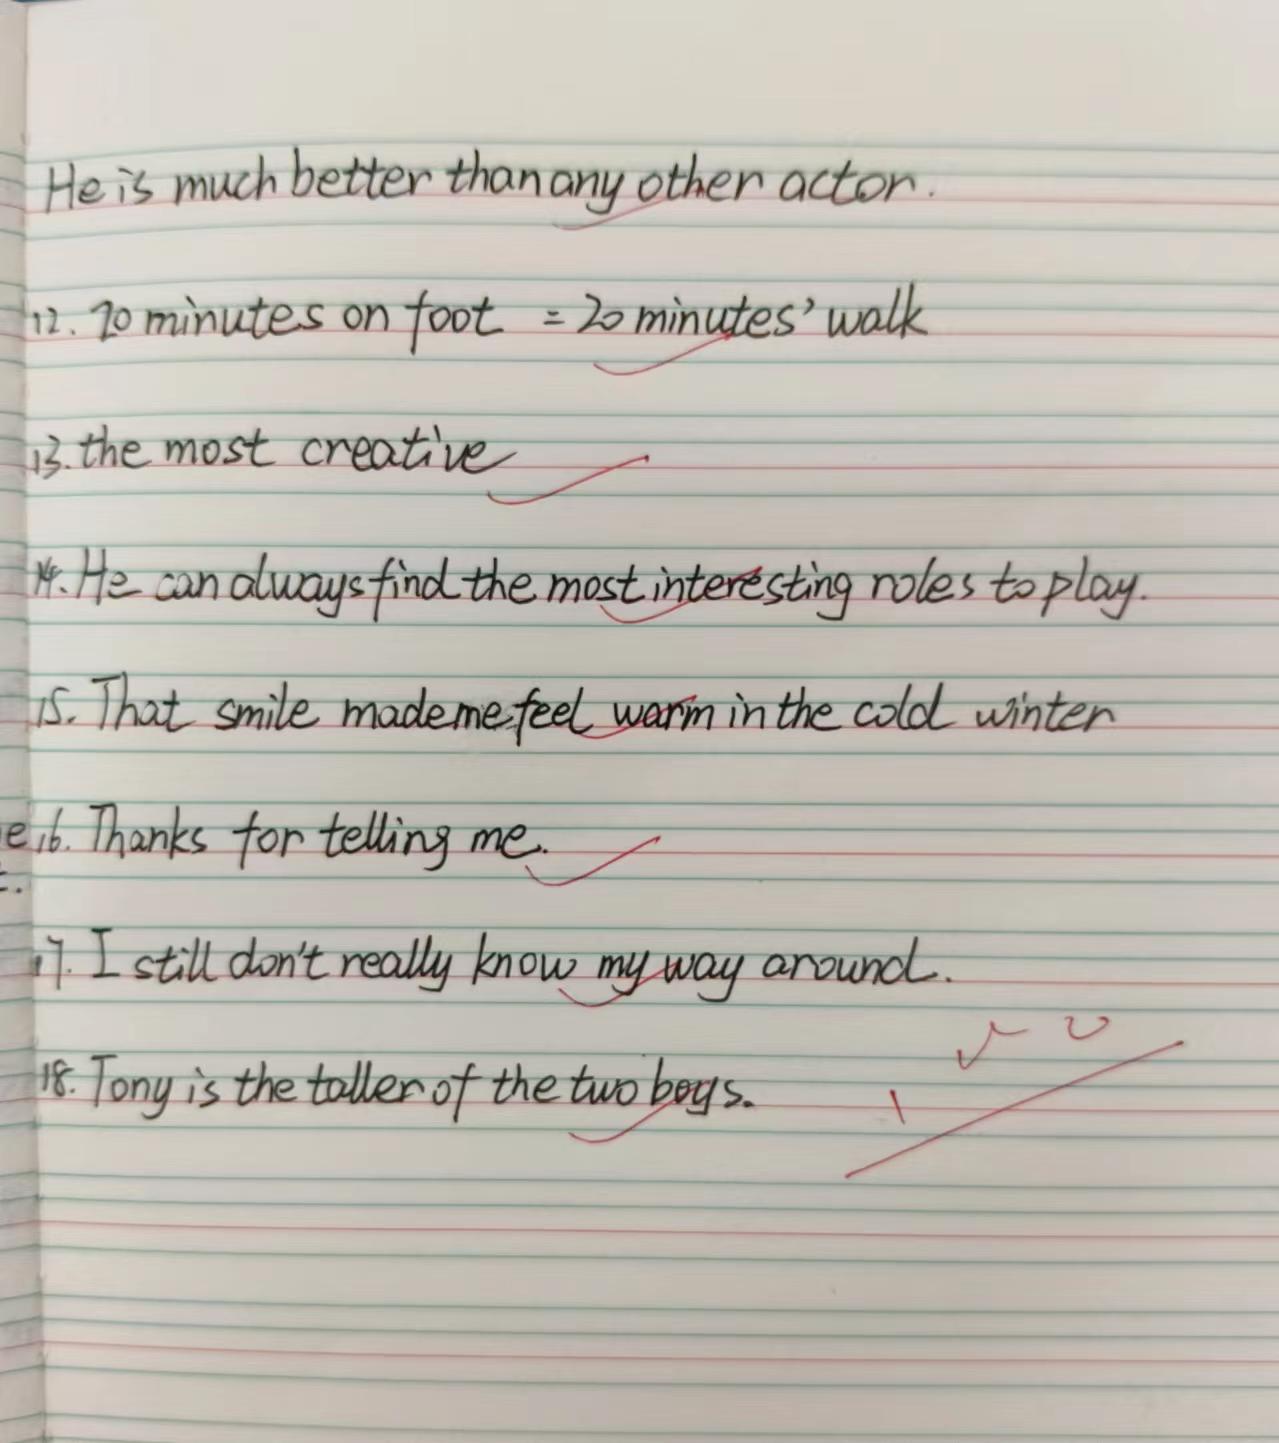 He is much better than any other actor.
12. 20 minutes on foot = 20 minutes' walk
13. the most creative
14. He can always find the most interesting roles to play.
15. That smile made me feel warm in the cold winter
e 16. Thanks for telling me.
17. I still don't really know my way around.
18. Tony is the taller of the two boys.